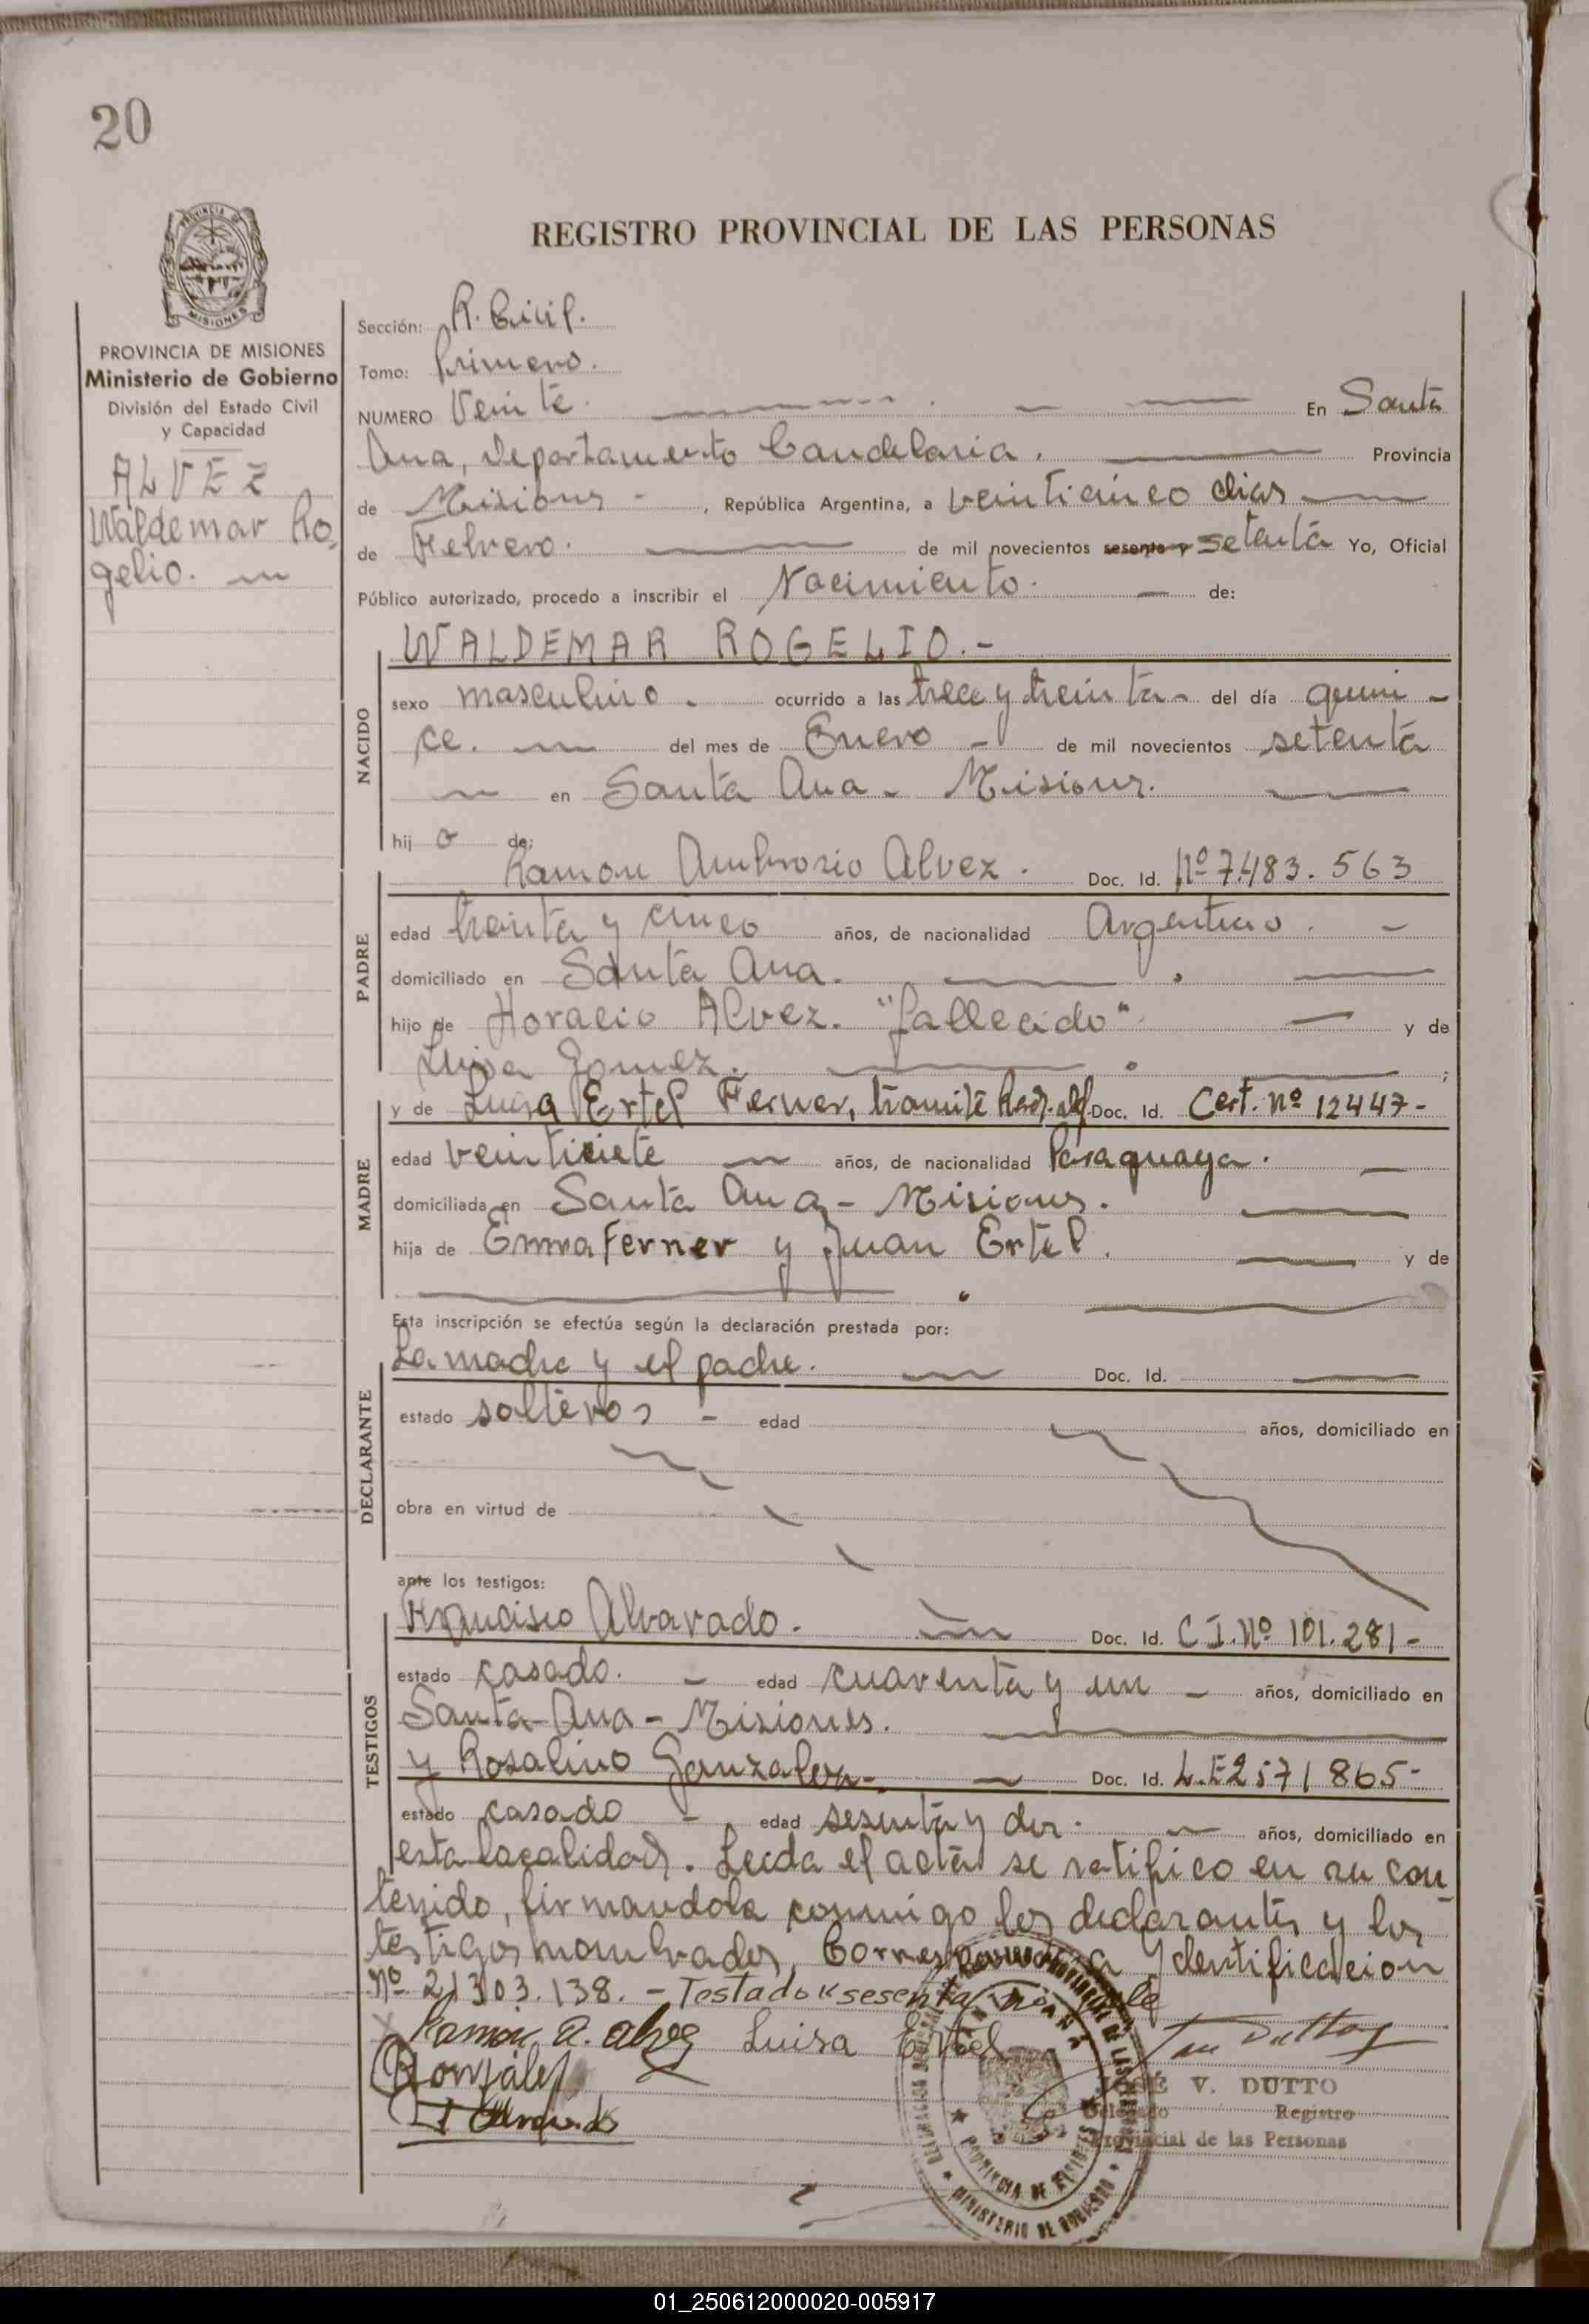 20
PROVINCIA DE
MISIONES
REGISTRO PROVINCIAL DE LAS PERSONAS
PROVINCIA DE MISIONES
Ministerio de Gobierno
División del Estado Civil
y Capacidad
ALVEZ
Waldemar Ro,
gelio.
Sección: R. Civil.
Tomo: Primero.
NUMERO Veinte. En Santa
Ana, Departamento Candelaria. Provincia
de Misiones - , República Argentina, a veinticinco dias
de Febrero. de mil novecientos sesenta y setenta Yo, Oficial
Público autorizado, procedo a inscribir el Nacimiento. de:
WALDEMAR ROGELIO.-
NACIDO
sexo masculino. ocurrido a las trece y treinta - del día quin -
ce. del mes de Enero - de mil novecientos setenta
en Santa Ana - Misiones.
hij o de:
PADRE
Ramon Ambrosio Alvez. Doc. Id. Nº 7.483.563
edad treinta y cinco años, de nacionalidad Argentino. -
domiciliado en Santa Ana.
hijo de Horacio Alvez. "fallecido" y de
Luisa Gomez. ;
MADRE
y de Luisa Ertel Ferner, tramite Rad. Doc. Id. Cert. nº 12447-
edad veintisiete años, de nacionalidad Paraguaya.
domiciliada en Santa Ana - Misiones.
hija de Emma Ferner y Juan Ertel. y de
Esta inscripción se efectúa según la declaración prestada por:
DECLARANTE
La madre y el padre. Doc. Id.
estado solteros - edad años, domiciliado en
obra en virtud de
ante los testigos:
TESTIGOS
Francisco Alvarado. Doc. Id. C I. Nº 101.281-
estado casado. - edad cuarenta y un - años, domiciliado en
Santa-Ana - Misiones.
y Rosalino Gonzalez -. Doc. Id. L.E 2571865-
estado casado - edad sesenta y dos. años, domiciliado en
esta localidad. Leida el acta se ratifico en su con
tenido, firmandola conmigo los declarantes y los
testigos nombrados. Corresponde a Ydentificacion
nº 21303.138. - Testado "sesenta no vale
Ramon. A. Alvez Luisa Ertel
Gonzalez
JOSÉ V. DUTTO
Delegado Registro
Provincial de las Personas
PROVINCIA DE MISIONES
MINISTERIO DE GOBIERNO
01_250612000020-005917